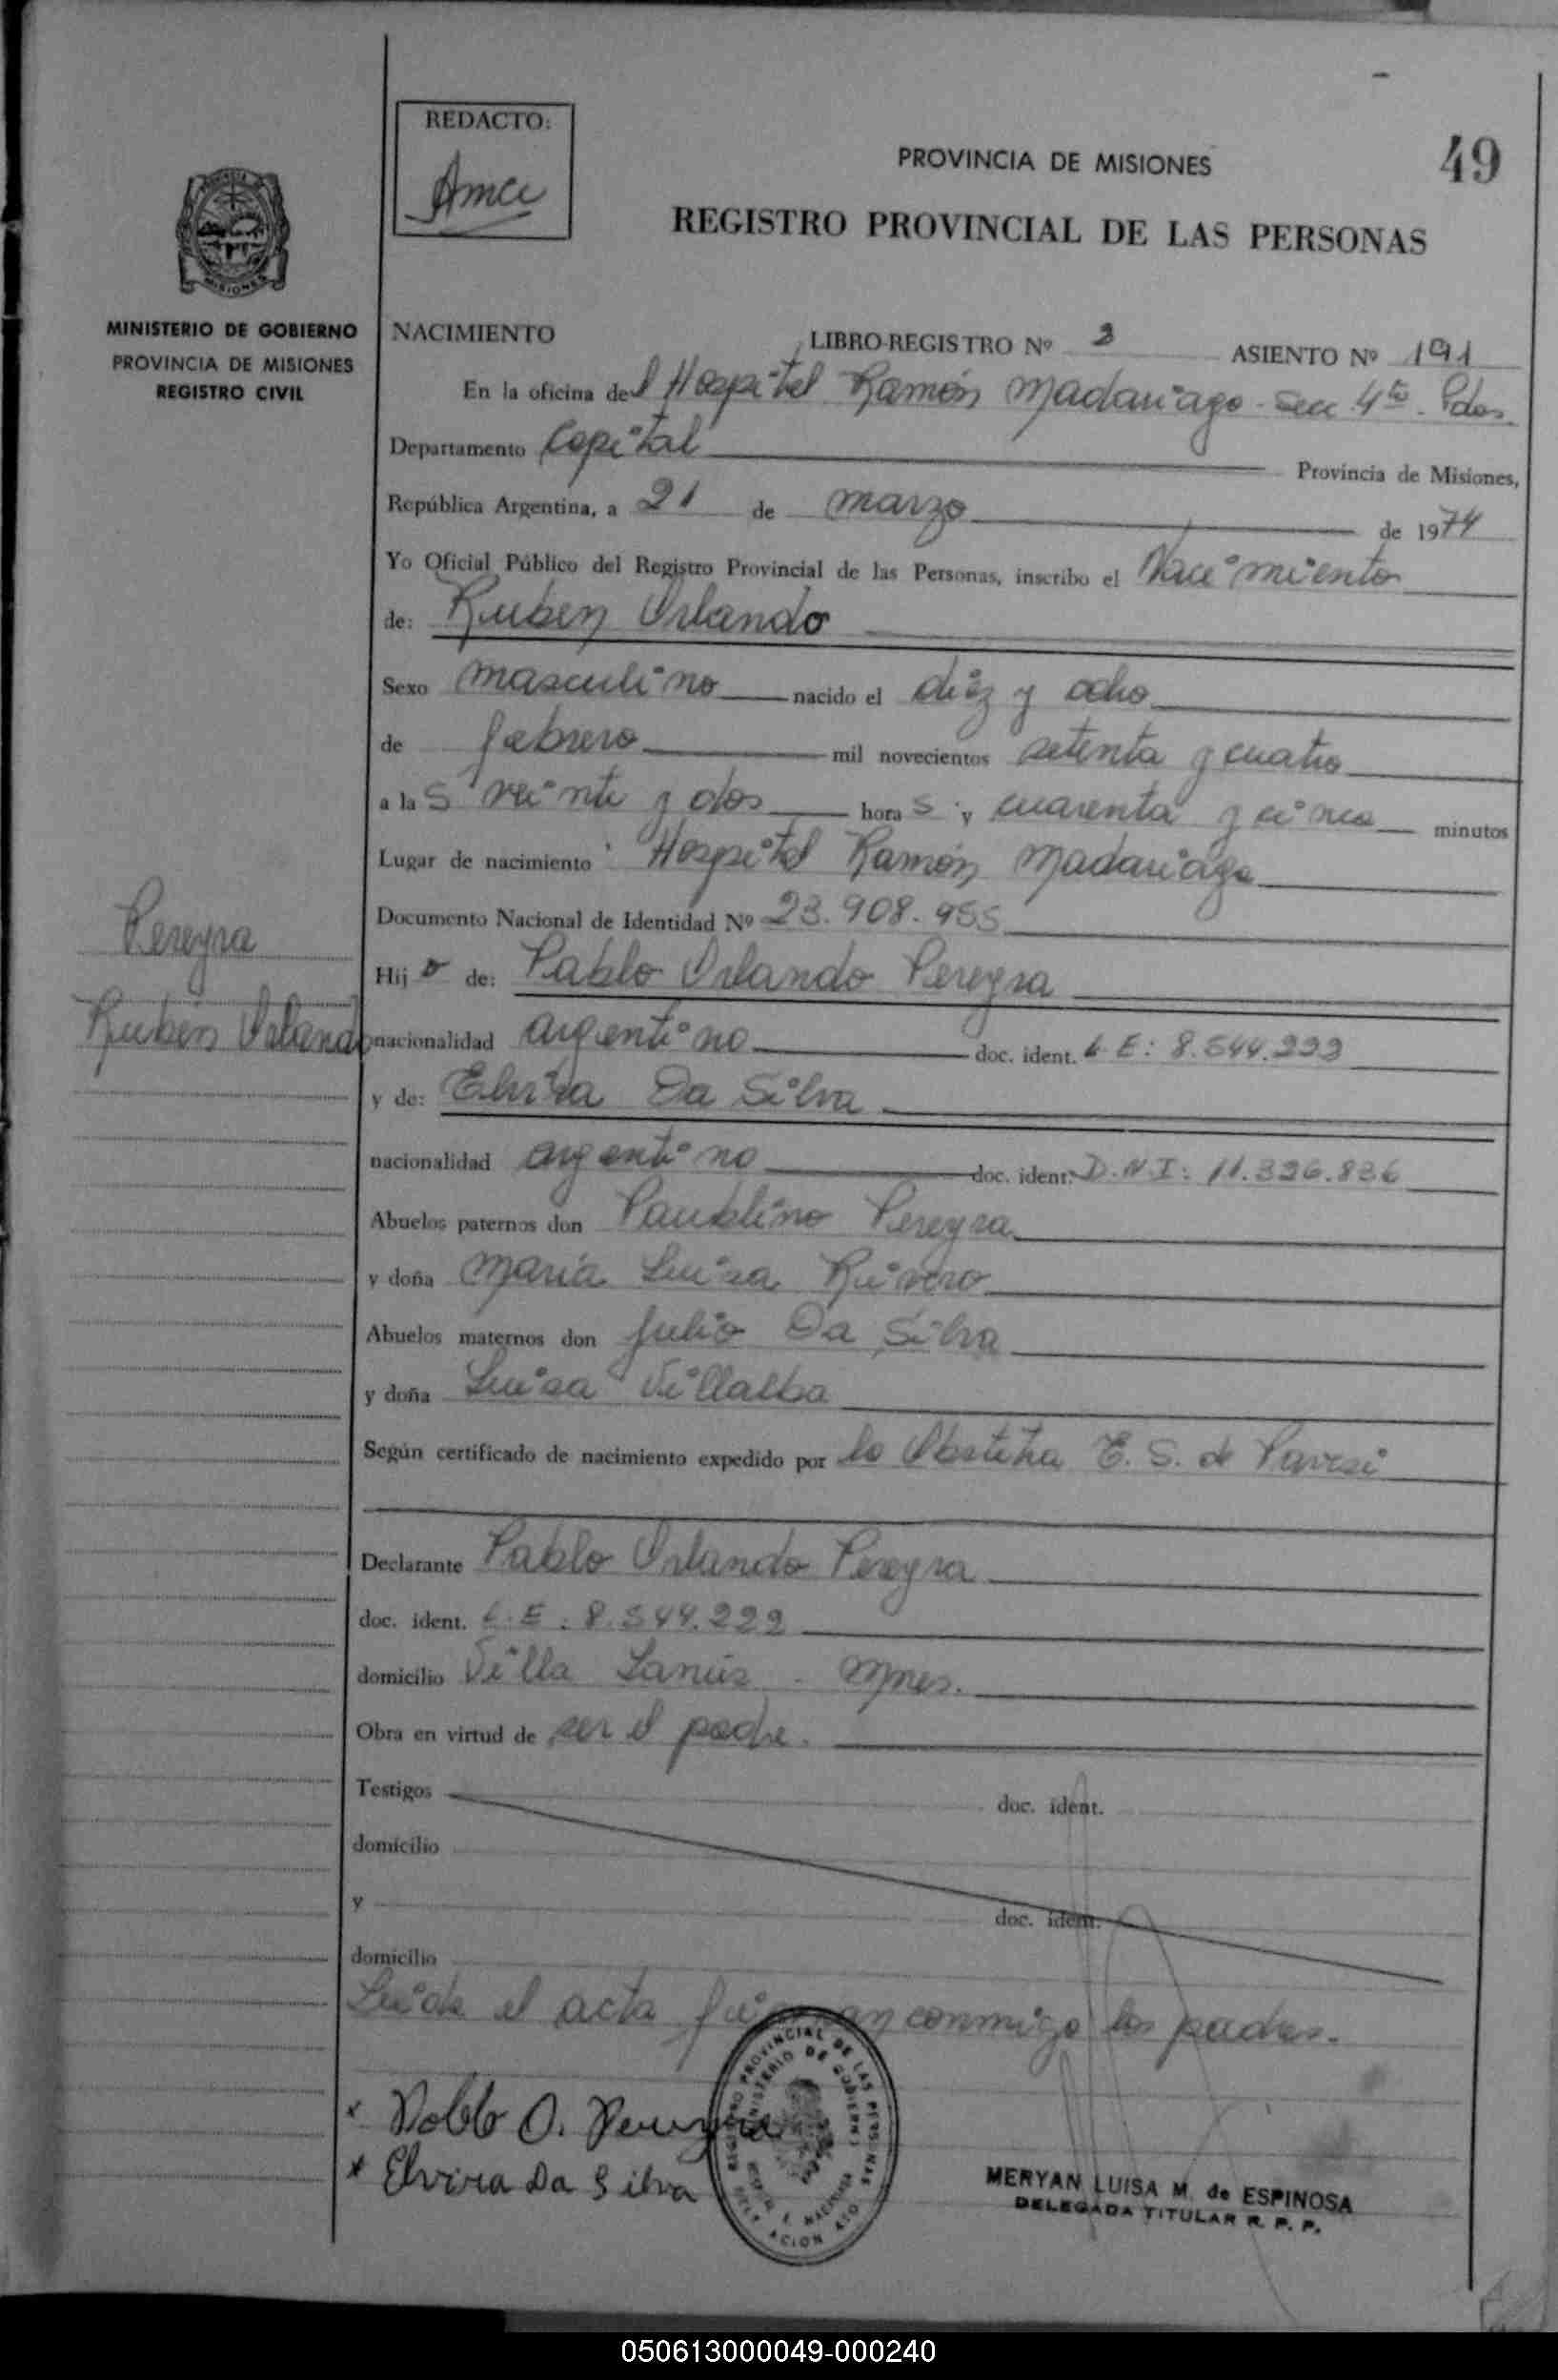 REDACTO:
Ama
PROVINCIA DE MISIONES
49
REGISTRO PROVINCIAL DE LAS PERSONAS
MISIONES
MINISTERIO DE GOBIERNO
PROVINCIA DE MISIONES
REGISTRO CIVIL
NACIMIENTO LIBRO-REGISTRO Nº 2 ASIENTO Nº 191
En la oficina del Hospital Ramón Madariaga - Sec. 4ta - Pdas.
Departamento Capital Provincia de Misiones,
República Argentina, a 21 de marzo de 1974
Yo Oficial Público del Registro Provincial de las Personas, inscribo el Nacimiento
de: Ruben Orlando
Sexo masculino nacido el diez y ocho
de febrero mil novecientos setenta y cuatro
a las veinte y dos horas y cuarenta y cinco minutos
Lugar de nacimiento Hospital Ramón Madariaga
Documento Nacional de Identidad Nº 23.908.955
Pereyra
Rubén Orlando
Hijo de: Pablo Orlando Pereyra
nacionalidad argentino doc. ident. L.E: 8.544.222
y de: Elvira Da Silva
nacionalidad argentino doc. ident. D.N.I: 11.326.836
Abuelos paternos don Paublino Pereyra
y doña María Luisa Rivero
Abuelos maternos don Julio Da Silva
y doña Luisa Villalba
Según certificado de nacimiento expedido por la Obstetra E. S. de Pavesi
Declarante Pablo Orlando Pereyra
doc. ident. L.E: 8.544.222
domicilio Villa Lanús - Mnes.
Obra en virtud de ser el padre.
Testigos doc. ident.
domicilio
y doc. ident.
domicilio
Leida el acta firman conmigo los padres.
x Pablo O. Pereyra
x Elvira Da Silva
REGISTRO PROVINCIAL DE LAS PERSONAS
MINISTERIO DE GOBIERNO
MERYAN LUISA M. de ESPINOSA
DELEGADA TITULAR R. P. P.
050613000049-000240